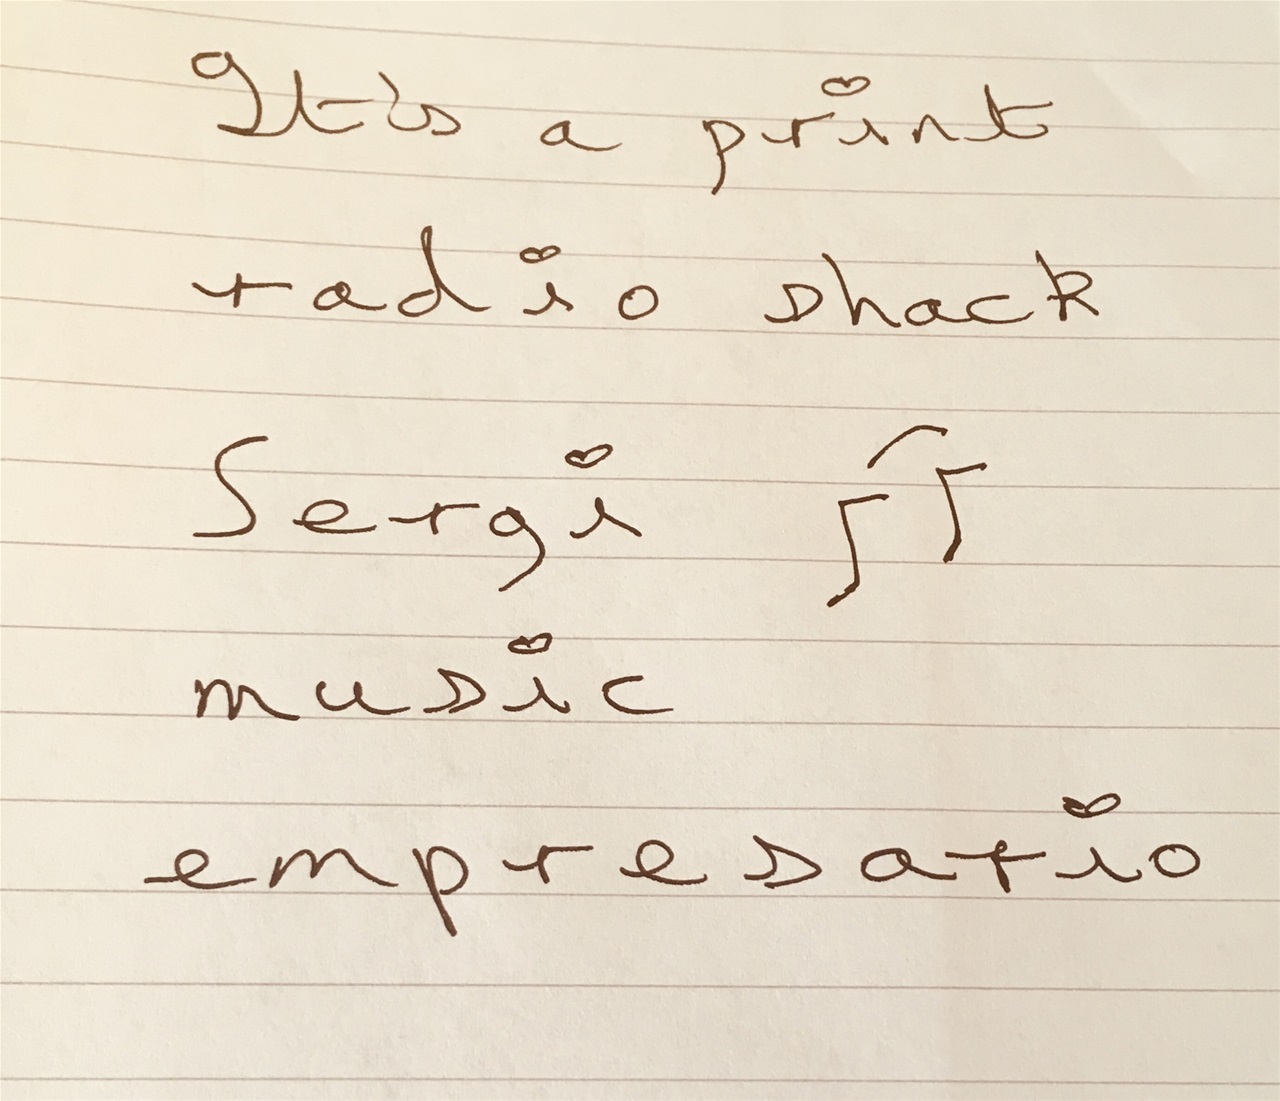 It's a print
radio shack
Sergi
music
empresario